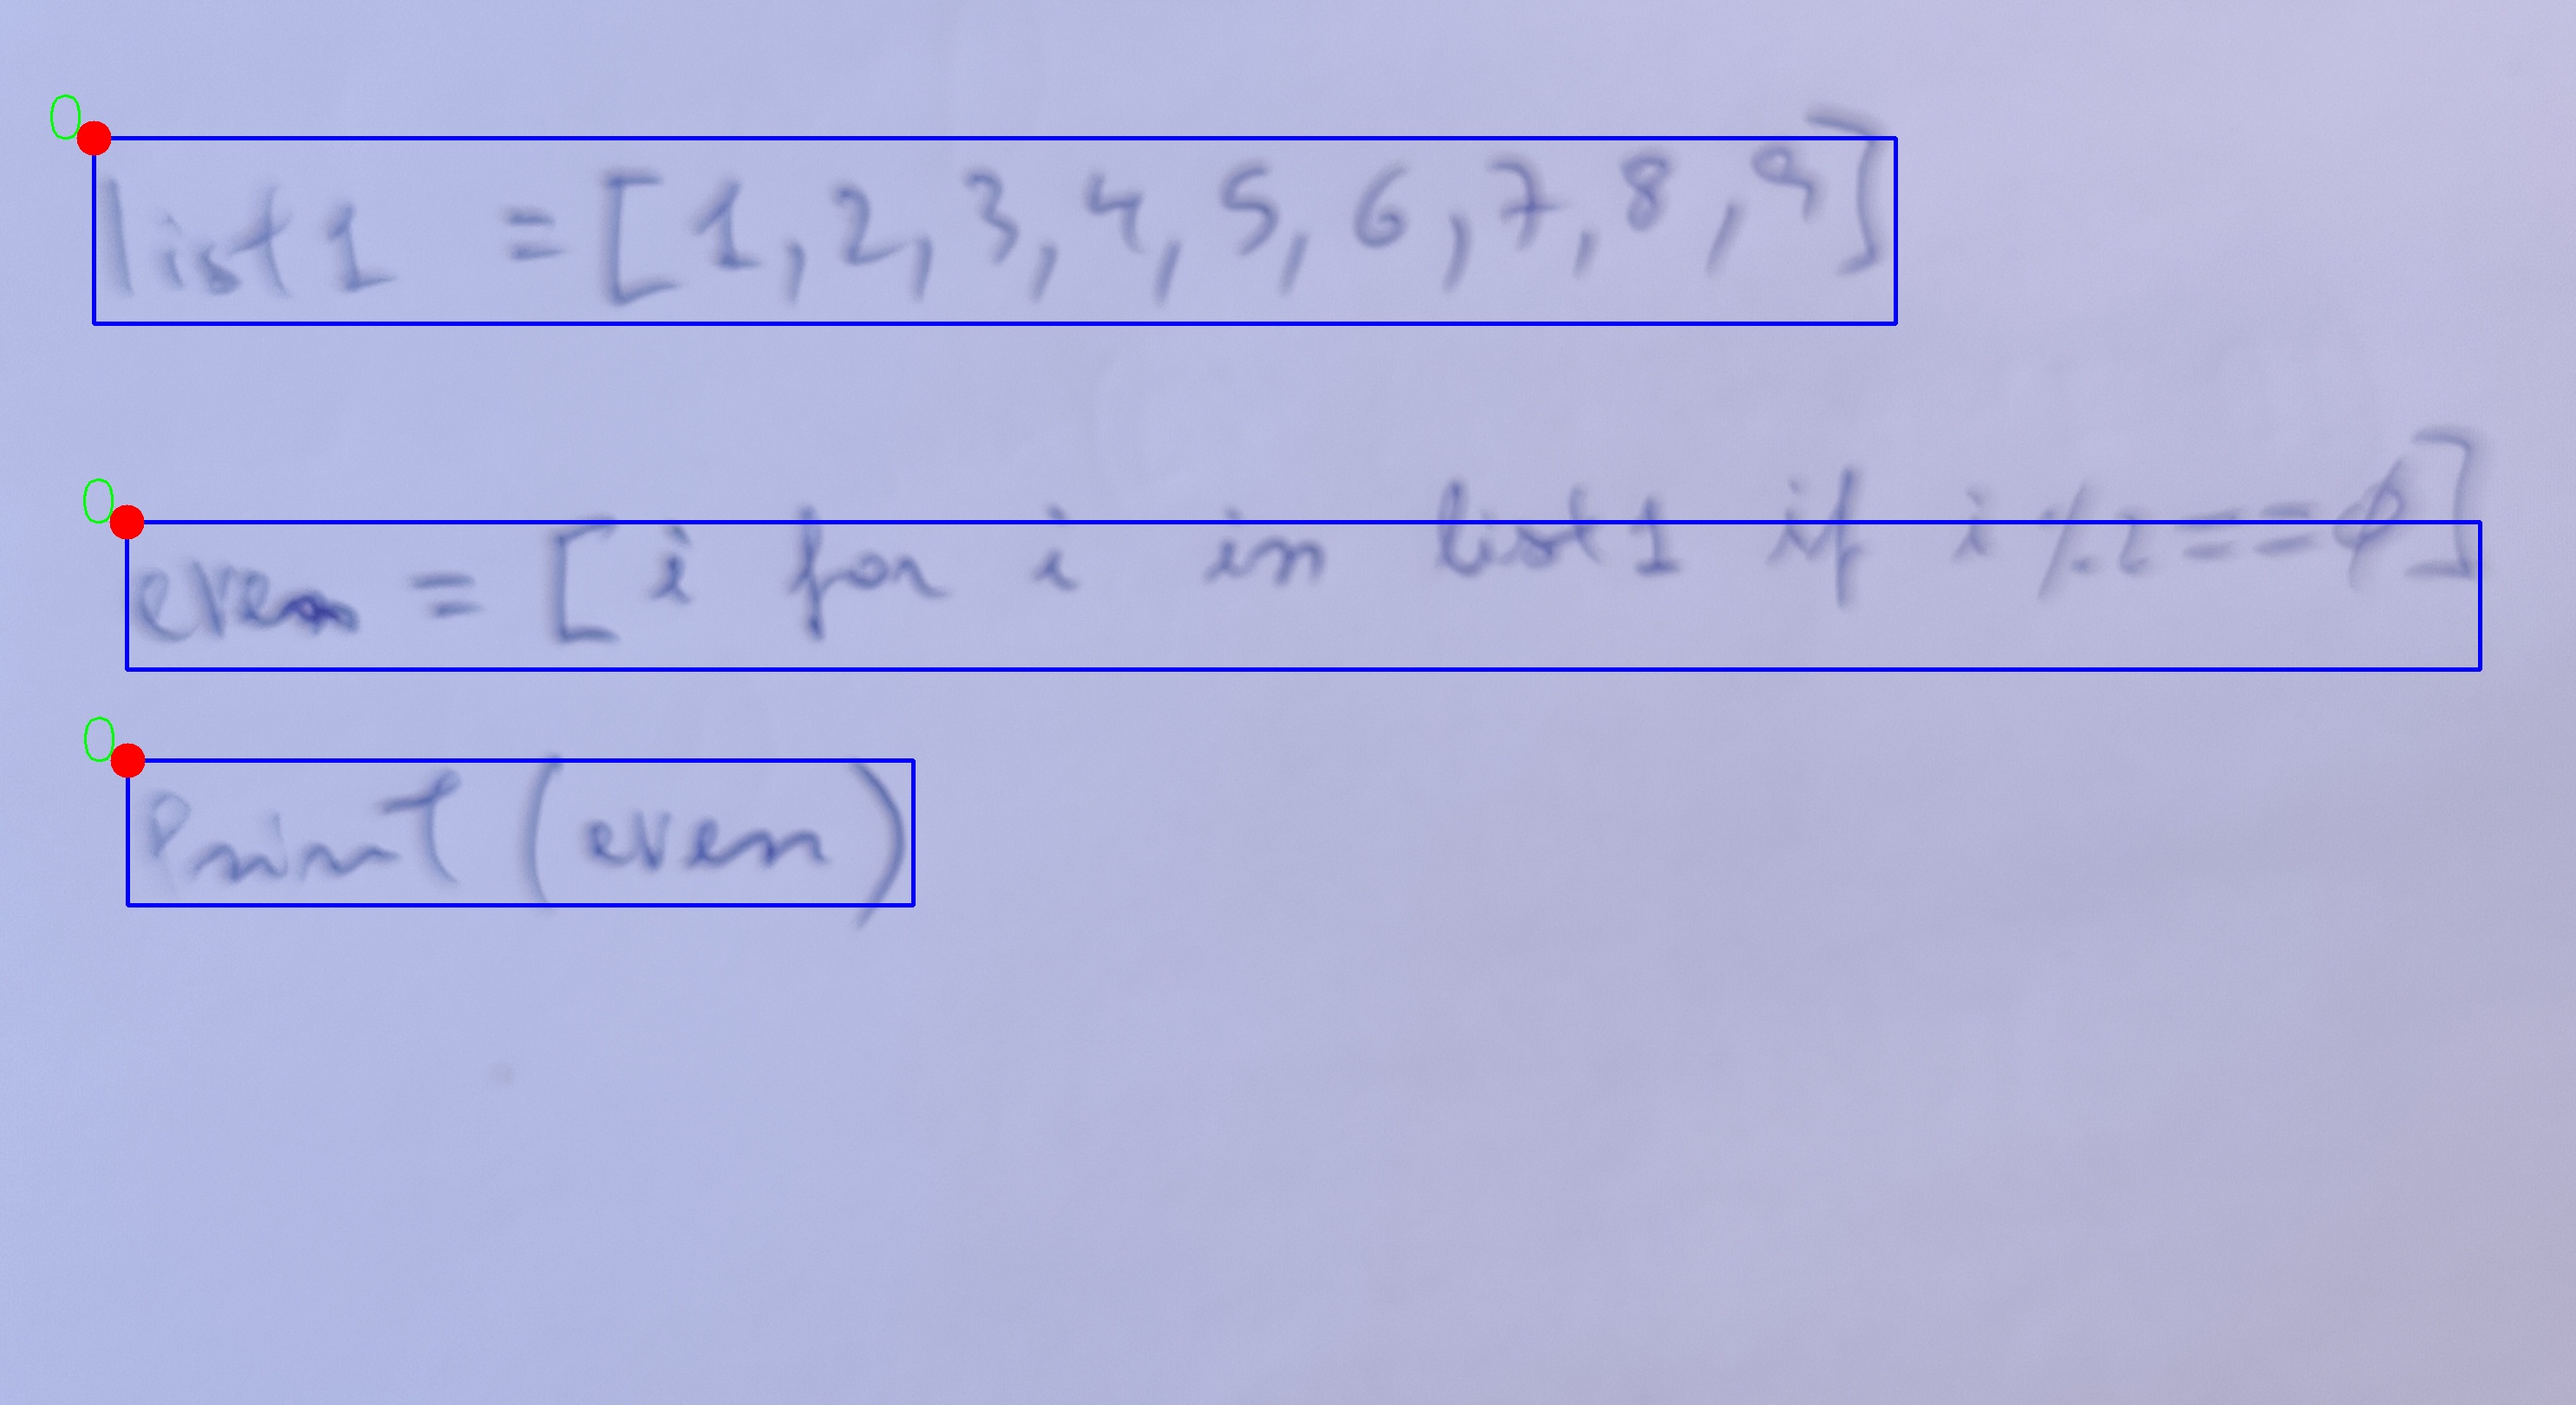 0
list1 = [1,2,3,4,5,6,7,8,9]
0
even = [i for i in list1 if i%2==0]
0
Print (even)